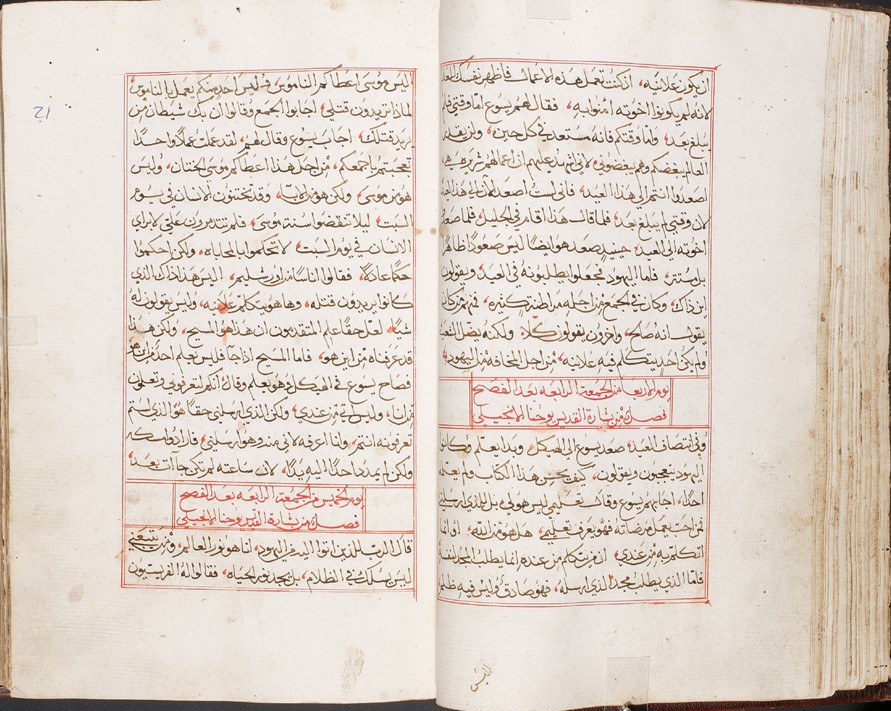 ان يكون علانيه، ان كنت تعمل هذه الاعمال فاظهر نفسك للعالم
لانه لم يكونوا اخوته امنوا به، فقال لهم يسوع اما وقتي فلم
يبلغ بعد، واما وقتكم فانه مستعد في كل حين، ولن يقدر
العالم يبغضكم وهم يبغضوني، لاني اشهد عليهم ان اعمالهم شريره هي
اصعدوا انتم الي هذا العيد، فاني لست اصعد الان الي هذا العيد
لان وقتي لم يبلغ بعد، فلما قال هذا اقام في الجليل، فلما صعد
اخوته الي العيد، حينيذ صعد هو ايضًا ليس صعودًا ظاهرًا
بل مستتر، فاما اليهود فجعلوا يطلبونه في العيد، ويقولون
اين ذاك، وكان في الجمع من اجله مراطنة كثيره، فمنهم من كان
يقول انه صالح، واخرون يقولون كلا، ولكنه يضل الشعب
ولم يكن احد يتكلم فيه علانيه، من اجل المخافه من اليهود،
يوم الاربعا من الجمعة الرابعه بعد الفصح
فصل من بشارة القديس يوحنا الانجيلي
وفي انتصاف العيد، صعد يسوع الي الهيكل، وبدا يعلم وكان
اليهود يتعجبون ويقولون، كيف يحسن هذا الكتاب ولم يعلمه
احدًا، اجابهم يسوع وقال تعليمي ليس هو لي، بل للذي ارسلني
فمن احب يعمل مرضاته فهو يعرف تعليمي، هل هو من الله، او انما
اتكلم به من عندي، ان من يتكلم من عنده انما يطلب المجد لنفسه
فاما الذي يطلب مجد الذي ارسله، فهو صادق وليس فيه ظلم
اليس
21
اليس موسى اعطاكم الناموس، فليس احد منكم يعمل بالناموس
لماذا تريدون قتلي، اجابوا الجمع وقالوا ان بك شيطان من
يريد قتلك، اجاب يسوع وقال لهم، لقد عملت عملا واحدًا
تعجبتم باجمعكم، من اجل هذا اعطاكم موسى الختان، وليس
هو من موسى، ولكن هو من الابا، وقد تختنون الانسان في يوم
السبت، ليلا تنقضوا سنة موسى، فلم تتذمرون علي، لابراي
الانسان في يوم السبت، لا تحكموا بالمحاباه، ولكن احكموا
حكمًا عادلًا، فقالوا اناسًا من اورشليم، اليس هذا ذاك الذي
كانوا يريدون قتله، وها هو يتكلم علانيه، وليس يقولون له
شيًا، لعل حقًا علم المتقدمون ان هذا هو المسيح، ولكن هذا
قد عرفناه من اين هو، فاما المسيح اذا جا فليس يعلم احد من اين هو
فصاح يسوع في الهيكل وهو يعلم وقال، انكم لتعرفوني وتعلمون
من انا، وليس اتي من عندي، ولكن الذي ارسلني حقًا هو الذي لستم
تعرفونه انتم، وانا اعرفه لاني منه وهو ارسلني، فارادوا مسكه
ولكن لم يمدد احدًا اليه يدًا، لان ساعته لم تكن جآت بعد،
يوم الخميس من الجمعة الرابعه بعد الفصح
فصل من بشارة القديس يوحنا الانجيلي
قال الرب للذين اتوا اليه من اليهود، انا هو نور العالم، ومن يتبعني
ليس يسلك في الظلام، بل يجد نور الحياه، فقالوا له الفريسيون